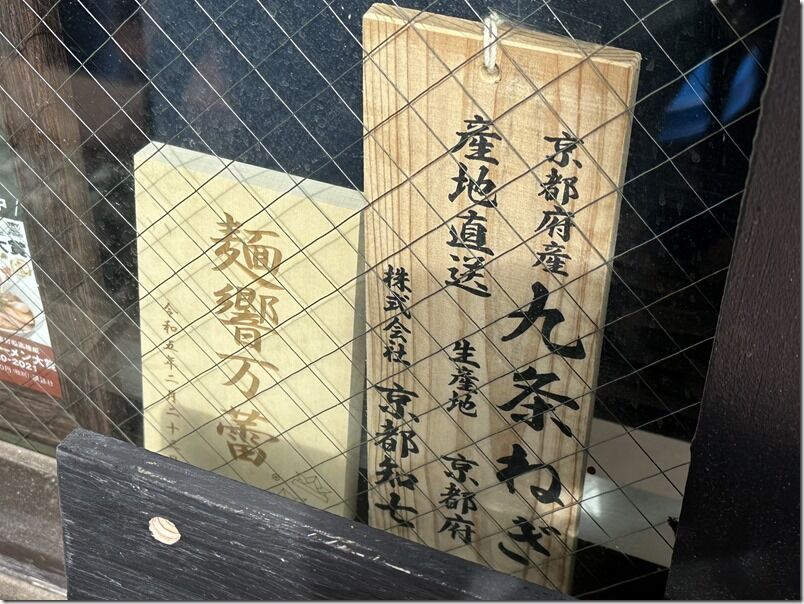 京都府産
九条ねぎ
産地直送
生産地 京都府
株式会社 京都知七
麺響万蕾
令和五年二月二十
大賞
ーメン大賞
0-2021